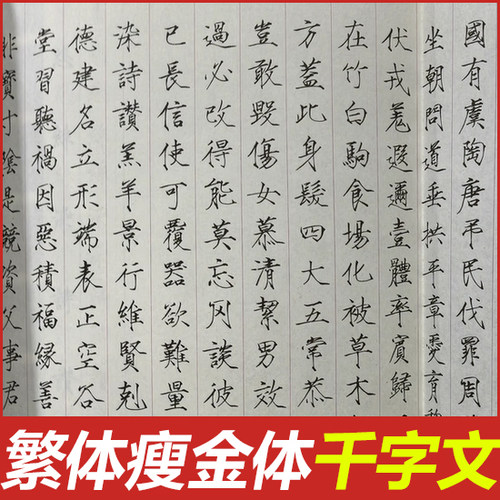 國有虞陶唐弔民伐罪周
坐朝問道垂拱平章愛育
伏戎羌遐邇壹體率賓歸
在竹白駒食場化被草木
方蓋此身髮四大五常恭
豈敢毀傷女慕清絜男效
過必改得能莫忘罔談彼
已長信使可覆器欲難量
染詩讚羔羊景行維賢剋
德建名立形端表正空谷
堂習聽禍因惡積福緣善
非寶寸陰是競資父事君
繁体瘦金体千字文